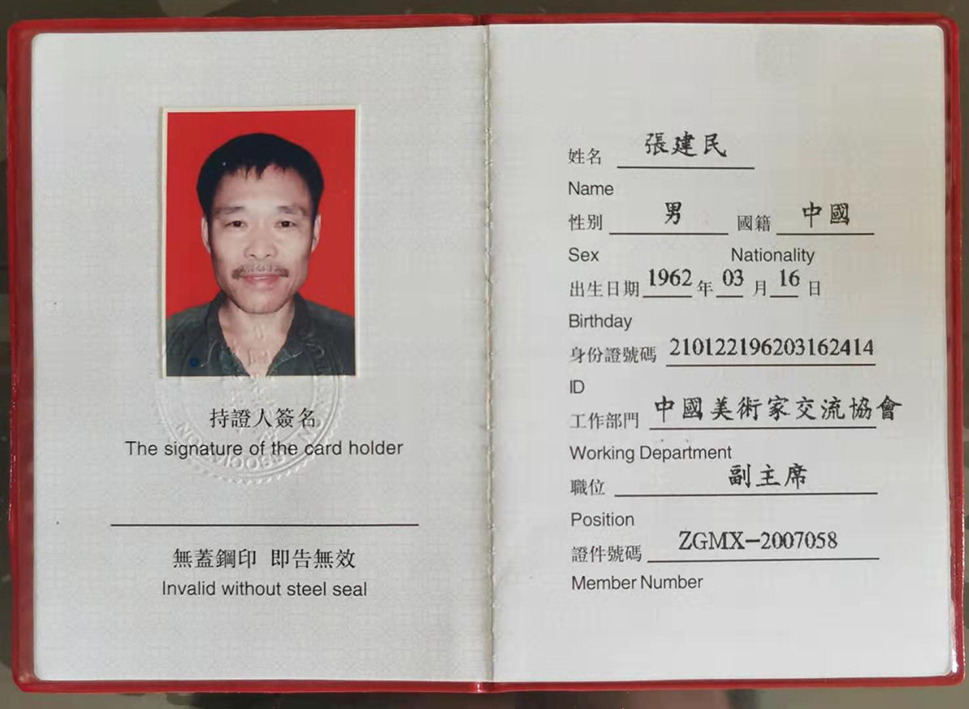 持證人簽名
The signature of the card holder
無蓋鋼印 即告無效
Invalid without steel seal
姓名 張建民
Name
性別 男 國籍 中國
Sex Nationality
出生日期 1962 年 03 月 16 日
Birthday
身份證號碼 210122196203162414
ID
工作部門 中國美術家交流協會
Working Department
職位 副主席
Position
證件號碼 ZGMX-2007058
Member Number